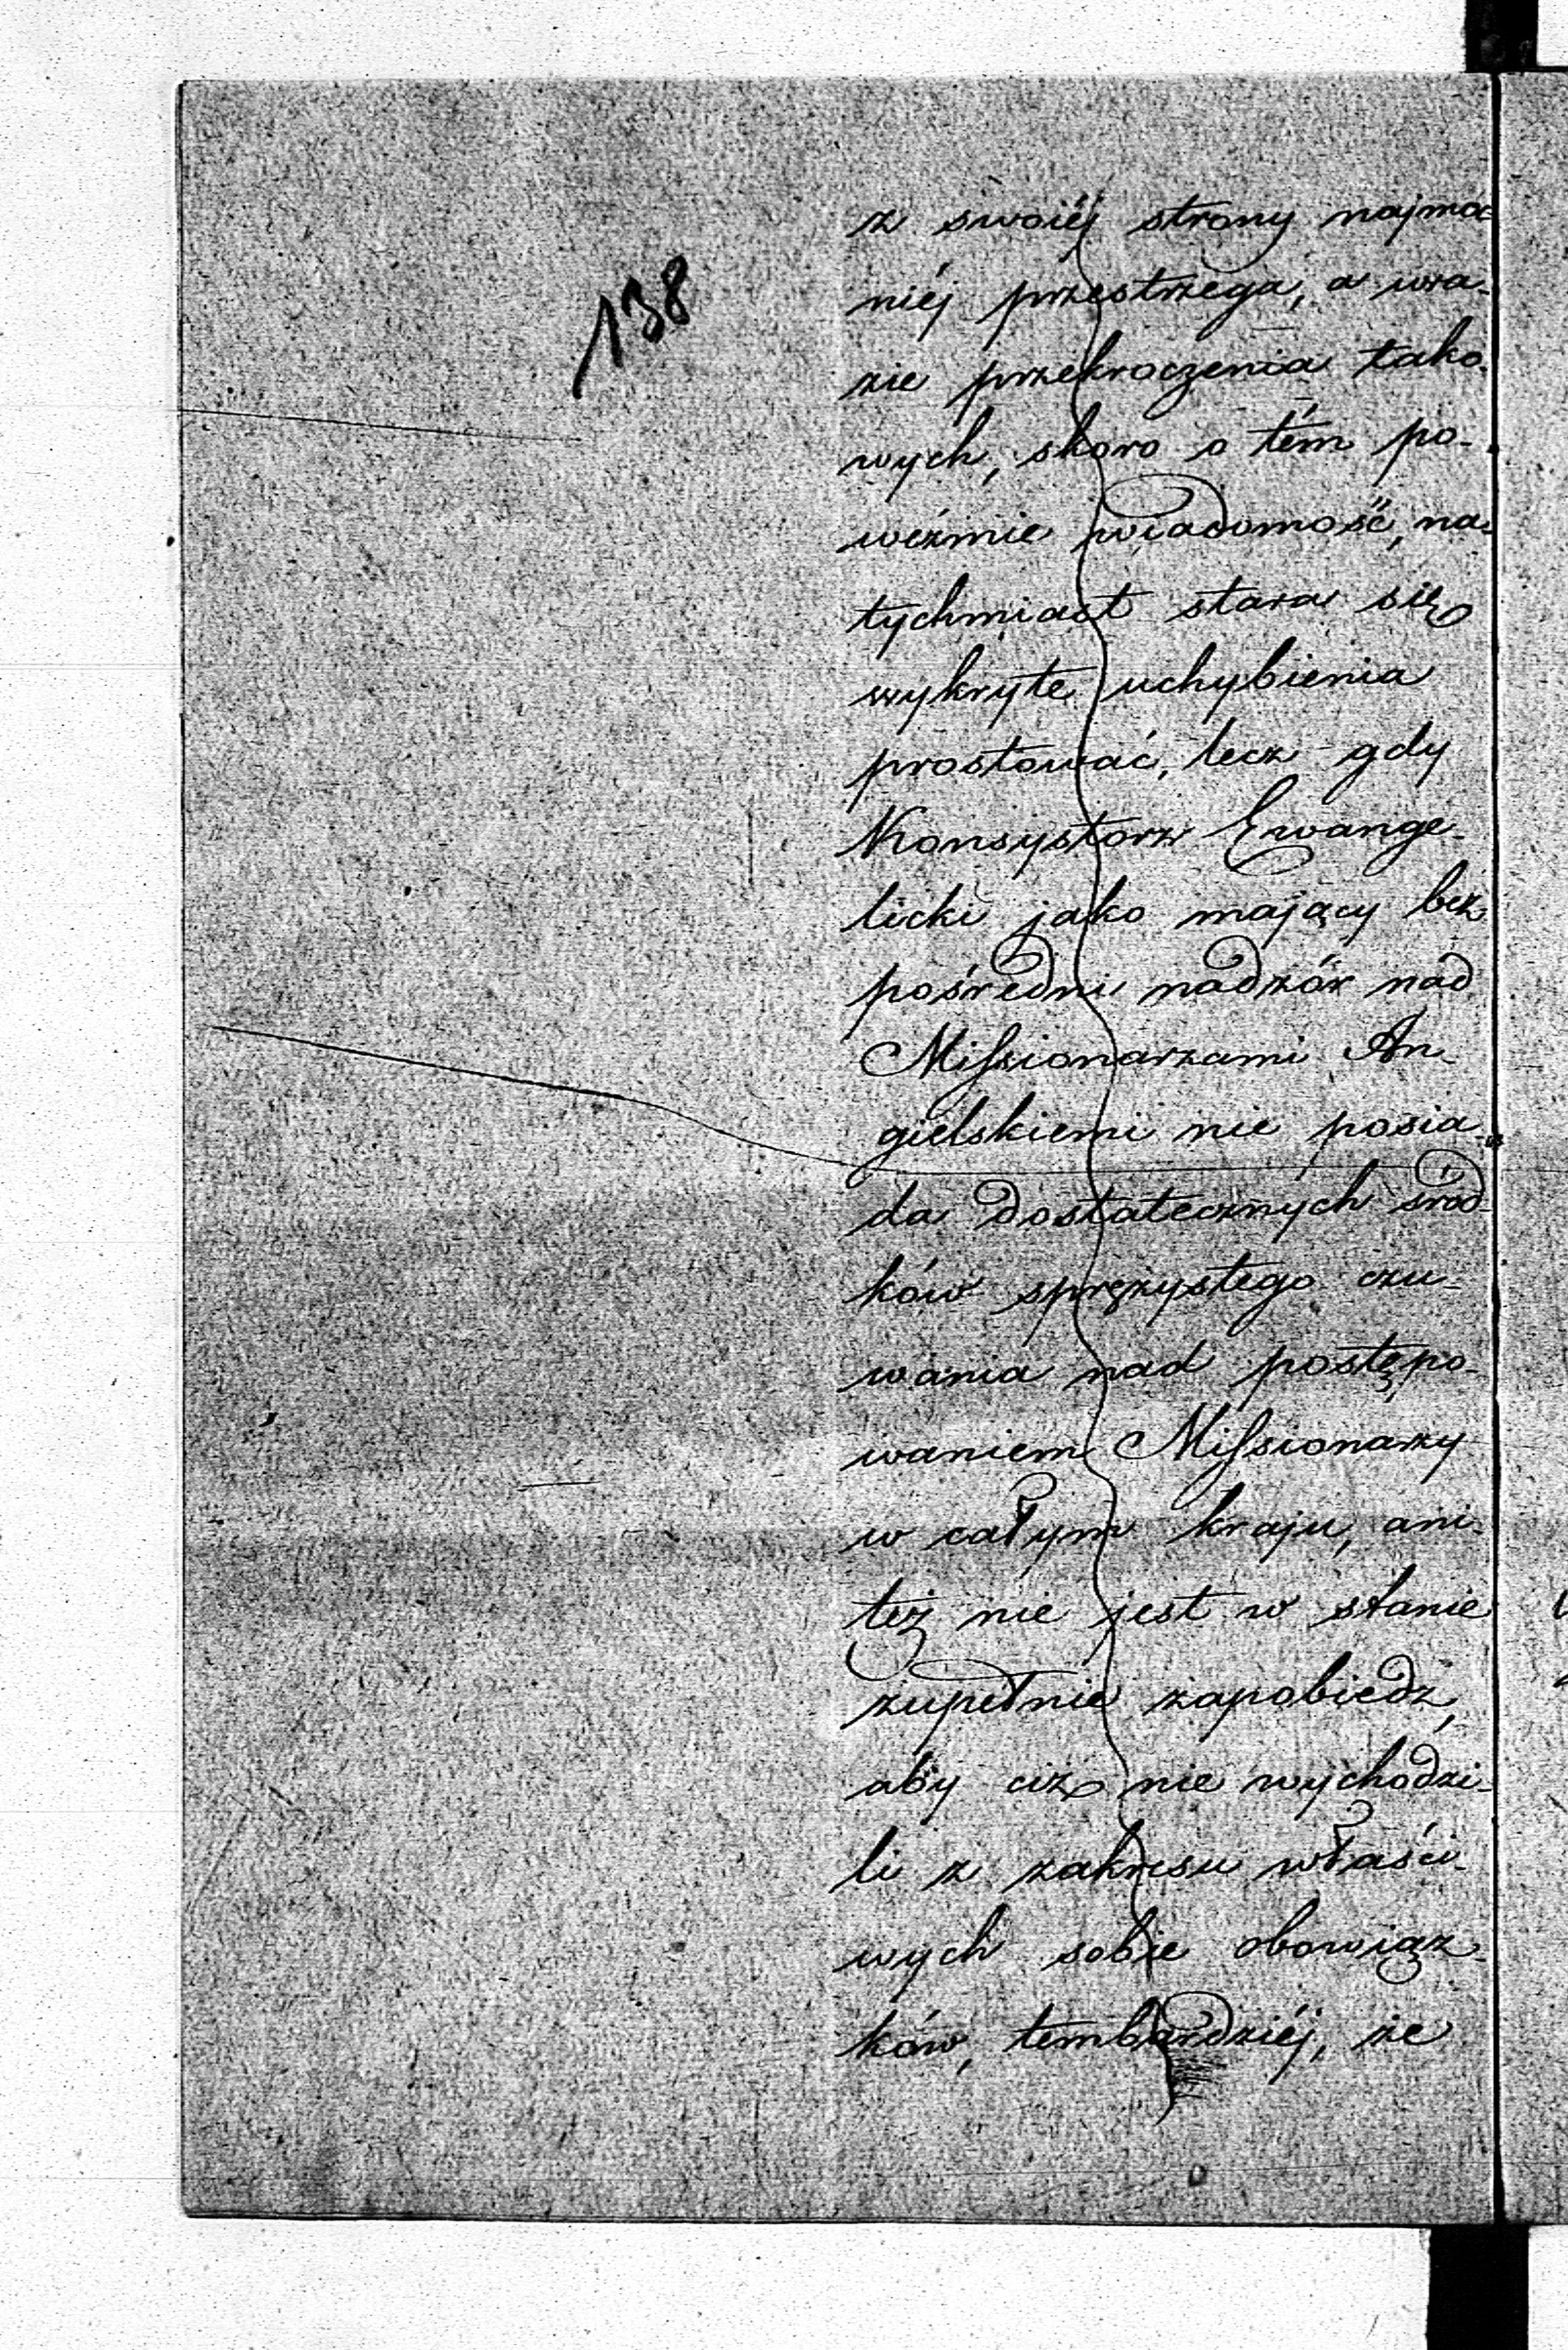 138
z swoiéj strony najmoc-
niéj przestrzega, a wra-
zie przekroczenia tako-
wych, skoro o tém po-
weźmie wiadomość, na-
tychmiast stara się
wykryte uchybienia
prostować, lecz gdy
Konsystorz Ewange-
licki jako mający bez-
pośredni nadzór nad
Missionarzami An-
gielskiemi nie posia-
da dostatecznych śród-
ków sprężystego czu-
wania nad postępo-
waniem Missionarzy
w całym kraju, ani-
też nie jest w stanie
zupełnie zapobiedz,
aby ciż nie wychodzi-
li z zakresu właści-
wych sobie obowiąz-
ków, tembardziéj, że